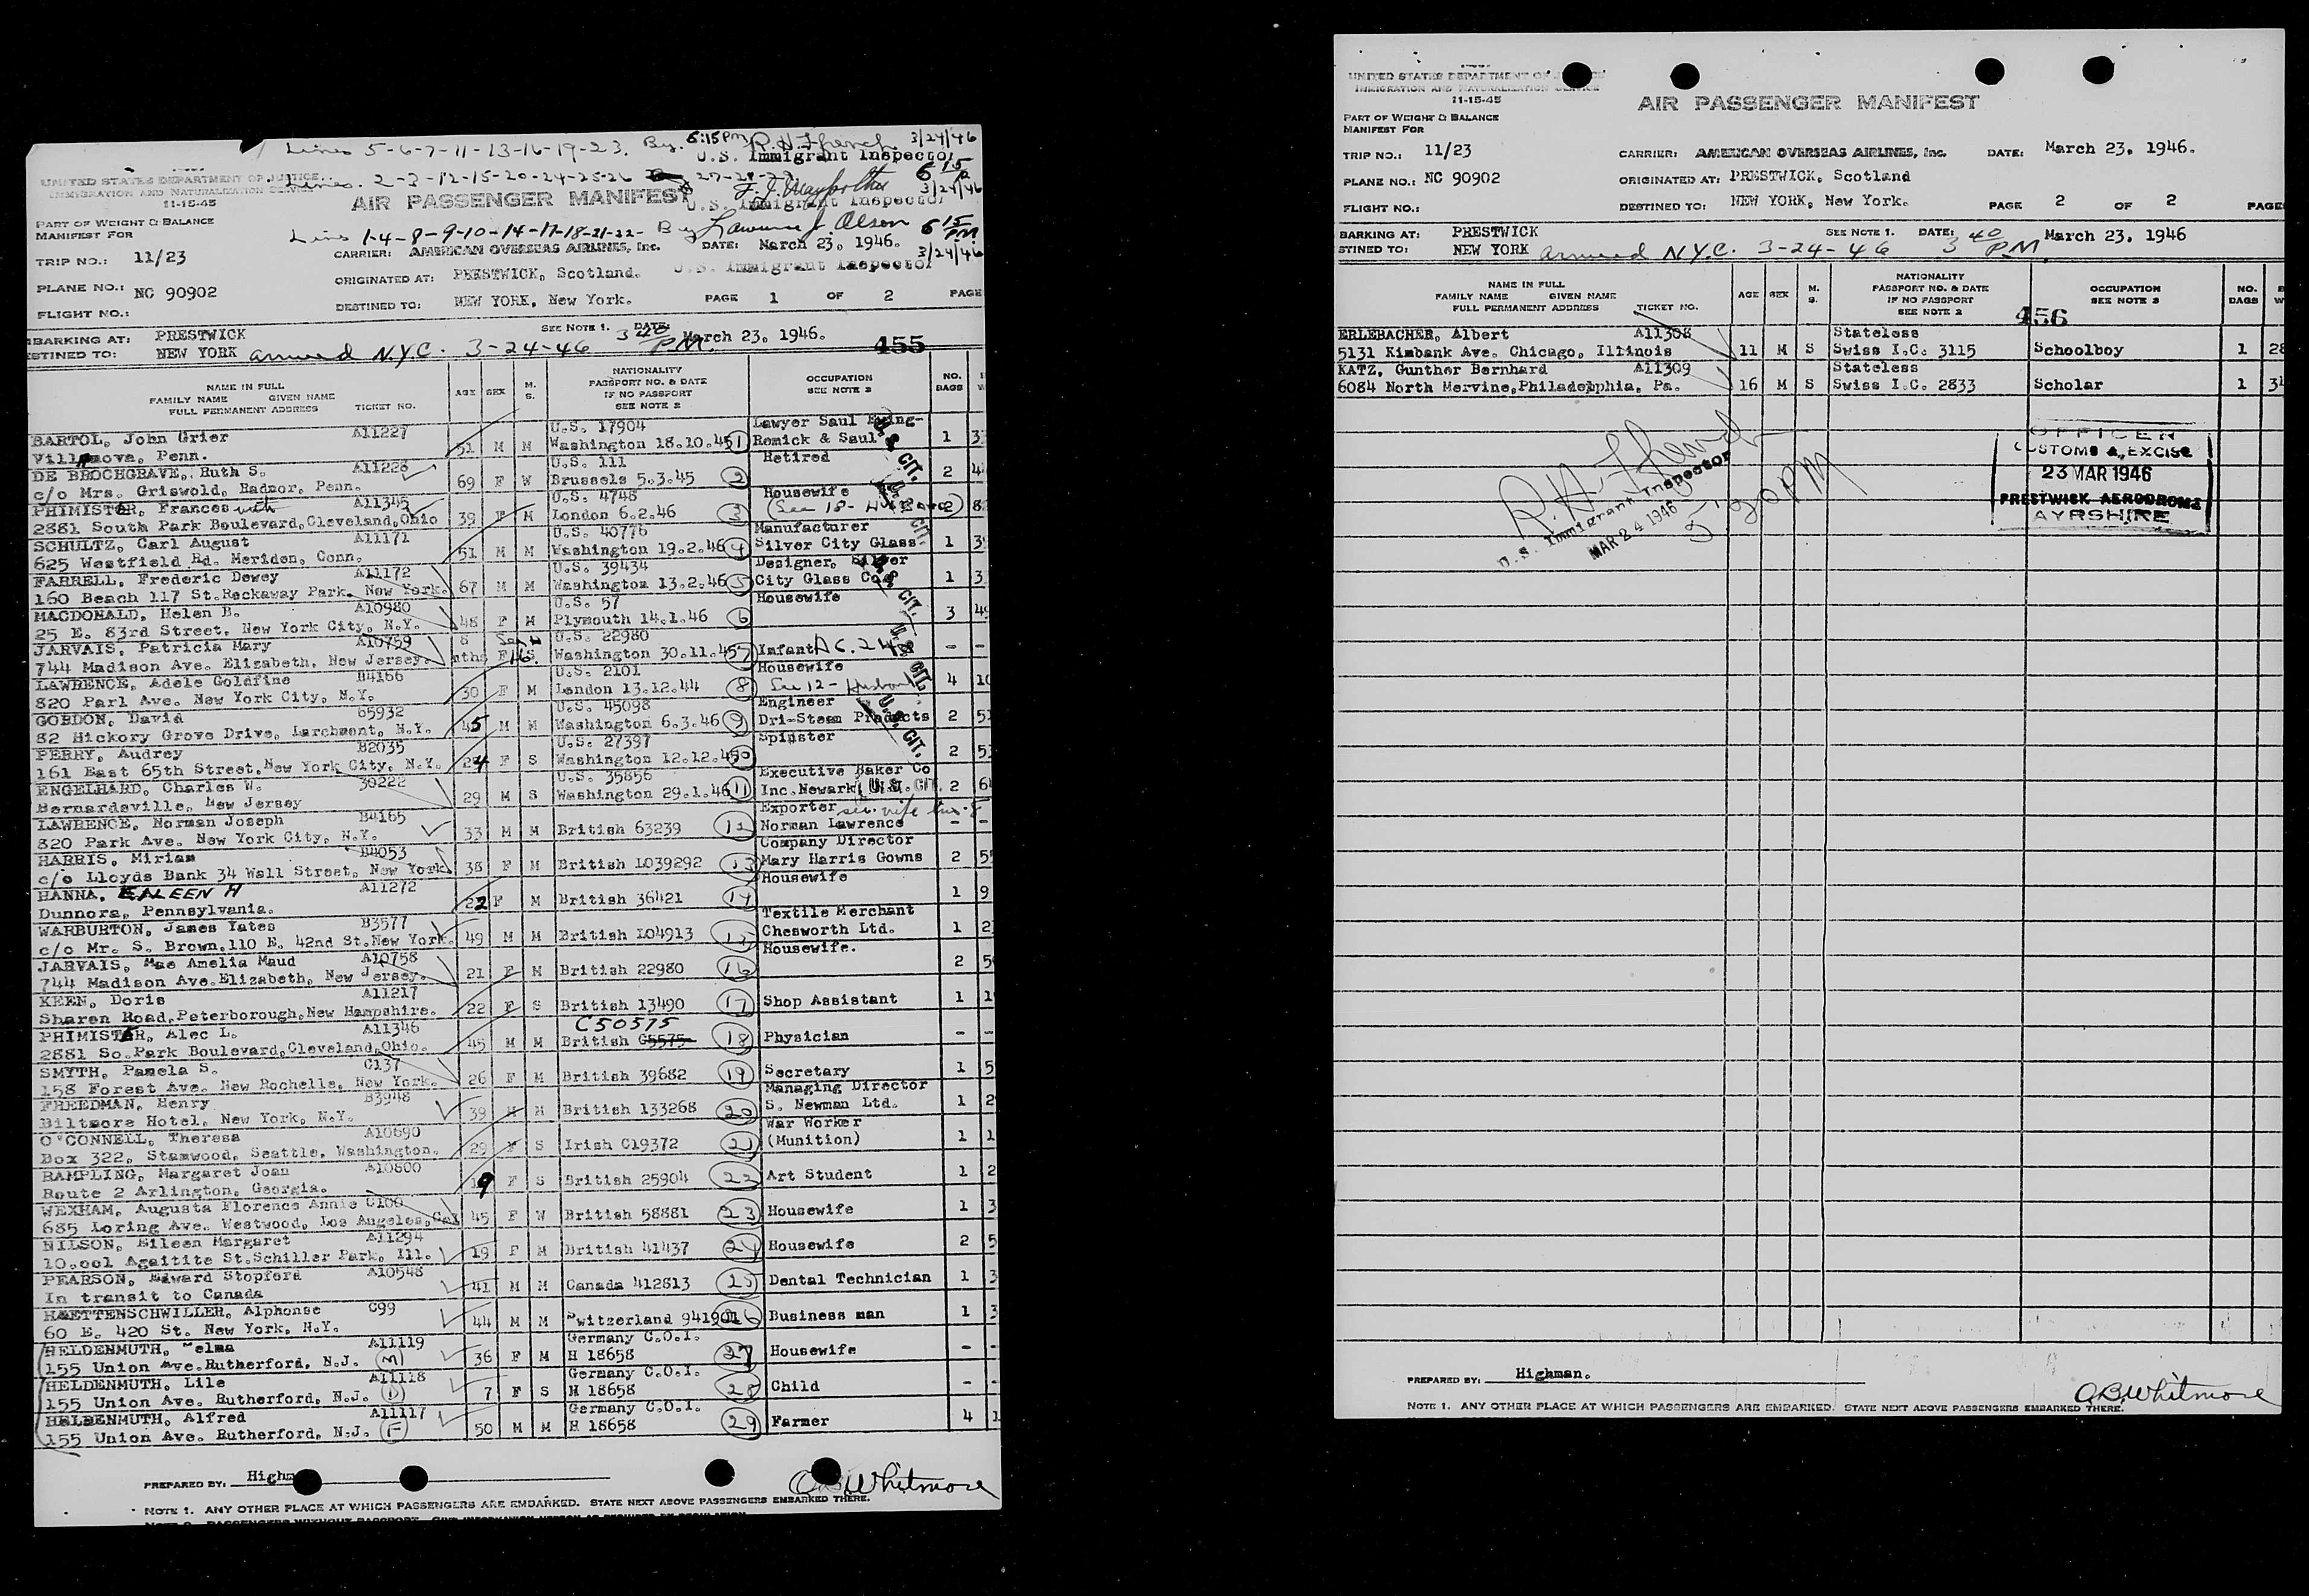 Lines 5-6-7-11-13-16-19-23. By. 5:15 PM R.H. French 3/24/46
U.S. Immigrant Inspector
UNITED STATES DEPARTMENT OF JUSTICE
Lines. 2-3-12-15-20-24-25-26 27-28-29 5 15 P
IMMIGRATION AND NATURALIZATION SERVICE
3/24/46
11-15-45
AIR PASSENGER MANIFEST
U.S. Immigrant Inspector
PART OF WEIGHT & BALANCE
MANIFEST FOR
Lines 1-4-8-9-10-14-17-18-21-22- By Lawrence J Olson 5 15 PM
3/24/46
TRIP NO.: 11/23
CARRIER: AMERICAN OVERSEAS AIRLINES, Inc. DATE: March 23, 1946.
U.S. Immigrant Inspector
PLANE NO.: NC 90902
ORIGINATED AT: PRESTWICK, Scotland.
FLIGHT NO.:
DESTINED TO: NEW YORK, New York. PAGE 1 OF 2 PAGE
BARKING AT: PRESTWICK SEE NOTE 1. DATE: March 23, 1946.
STINED TO: NEW YORK arrived N.Y.C. 3-24-46 3 40 PM.
455
NAME IN FULL
FAMILY NAME GIVEN NAME
FULL PERMANENT ADDRESS TICKET NO.
AGE SEX M. S.
NATIONALITY
PASSPORT NO. & DATE
IF NO PASSPORT
SEE NOTE 2
OCCUPATION
SEE NOTE 3
NO. BAGS
BARTOL, John Grier A11227 U.S. 17904 Lawyer Saul Ewing-
Villanova, Penn. 51 M M Washington 18.10.45 1 Remick & Saul 1 3
DE BROCHGRAVE, Ruth S. A11228 U.S. 111 Retired
c/o Mrs. Griswold, Radnor, Penn. 69 F W Brussels 5.3.45 2 2 4
PHIMISTER, Frances with A11345 U.S. 4748 Housewife
2881 South Park Boulevard, Cleveland, Ohio 39 F M London 6.2.46 3 (See 18- Husband) 2 8
SCHULTZ, Carl August A11171 U.S. 40776 Manufacturer
625 Westfield Rd. Meriden, Conn. 51 M M Washington 19.2.46 4 Silver City Glass 1 3
FARRELL, Frederic Dewey A11172 U.S. 39434 Designer, Silver
160 Beach 117 St. Rockaway Park. New York. 67 M M Washington 13.2.46 5 City Glass Co. 1 3
MACDONALD, Helen B. A10980 U.S. 57 Housewife
25 E. 83rd Street, New York City, N.Y. 48 F M Plymouth 14.1.46 6 3 49
JARVAIS, Patricia Mary A10759 8 See 16. U.S. 22980
744 Madison Ave. Elizabeth, New Jersey. mths F S Washington 30.11.45 7 Infant - -
LAWRENCE, Adele Goldfine B4166 U.S. 2101 Housewife
820 Parl Ave. New York City, N.Y. 30 F M London 13.12.44 8 See 12 - Husband 4 10
GORDON, David 65932 U.S. 45098 Engineer
82 Hickory Grove Drive, Larchmont, N.Y. 45 M M Washington 6.3.46 9 Dri-Steam Products 2 51
PERRY, Audrey B2035 U.S. 27397 Spinster
161 East 65th Street, New York City, N.Y. 24 F S Washington 12.12.45 10 2 5
ENGELHARD, Charles W. 30222 U.S. 35856 Executive Baker Co
Bernardsville, New Jersey 29 M S Washington 29.1.46 11 Inc. Newark, U.S. CIT. 2 6
LAWRENCE, Norman Joseph B4165 Exporter see wife line-8
820 Park Ave. New York City, N.Y. 33 M M British 63239 12 Norman Lawrence - -
HARRIS, Miriam B4053 Company Director
c/o Lloyds Bank 34 Wall Street, New York 38 F M British L039292 13 Mary Harris Gowns 2 5
HANNA, EALEEN H A11272 Housewife
Dunnora, Pennsylvania. 22 F M British 36421 14 1 9
WARBURTON, James Yates B3577 Textile Merchant
c/o Mr. S. Brown, 110 E. 42nd St. New York. 49 M M British L04913 15 Chesworth Ltd. 1 2
JARVAIS, Mae Amelia Maud A10758 Housewife.
744 Madison Ave. Elizabeth, New Jersey. 21 F M British 22980 16 2 5
KEEN, Doris A11217
Sharen Road, Peterborough, New Hampshire. 22 F S British 13490 17 Shop Assistant 1 1
PHIMISTER, Alec L. A11346 C50575
2881 So. Park Boulevard, Cleveland, Ohio. 45 M M British G5575 18 Physician - -
SMYTH, Pamela S. C137
158 Forest Ave. New Rochelle, New York. 26 F M British 39682 19 Secretary 1 5
FREEDMAN, Henry B3948 Managing Director
Biltmore Hotel, New York, N.Y. 39 M M British 133268 20 S. Newman Ltd. 1 2
O'CONNELL, Theresa A10690 War Worker
Box 322, Stanwood, Seattle, Washington. 29 F S Irish C19372 21 (Munition) 1 1
RAMPLING, Margaret Joan A10800
Route 2 Arlington, Georgia. 19 F S British 25904 22 Art Student 1 2
WEXHAM, Augusta Florence Annie C100
685 Loring Ave. Westwood, Los Angeles, Cal 45 F W British 58881 23 Housewife 1 3
NILSON, Eileen Margaret A11294
10.001 Agaitite St. Schiller Park, Ill. 19 F M British 41437 24 Housewife 2 5
PEARSON, Edward Stopford A10548
In transit to Canada 41 M M Canada 412813 25 Dental Technician 1 3
HAETTENSCHWILLER, Alphonse C99
60 E. 420 St. New York, N.Y. 44 M M Switzerland 26 Business man 1 3
HELDENMUTH, Selma A11119 Germany C.O.I.
155 Union Ave. Rutherford, N.J. (M) 36 F M H 18658 27 Housewife - -
HELDENMUTH, Lile A11118 Germany C.O.I.
155 Union Ave. Rutherford, N.J. (D) 7 F S H 18658 28 Child - -
HELDENMUTH, Alfred A11117 Germany C.O.I.
155 Union Ave. Rutherford, N.J. (F) 50 M M H 18658 29 Farmer 4 1
PREPARED BY: Highm
O.B. Whitmore
NOTE 1. ANY OTHER PLACE AT WHICH PASSENGERS ARE EMBARKED. STATE NEXT ABOVE PASSENGERS EMBARKED THERE.
UNITED STATES DEPARTMENT OF
IMMIGRATION AND NATURALIZATION SERVICE
11-15-45
AIR PASSENGER MANIFEST
PART OF WEIGHT & BALANCE
MANIFEST FOR
TRIP NO.: 11/23 CARRIER: AMERICAN OVERSEAS AIRLINES, Inc. DATE: March 23, 1946.
PLANE NO.: NC 90902 ORIGINATED AT: PRESTWICK, Scotland
FLIGHT NO.: DESTINED TO: NEW YORK, New York. PAGE 2 OF 2 PAGE
BARKING AT: PRESTWICK SEE NOTE 1. DATE: March 23, 1946
STINED TO: NEW YORK arrived N.Y.C. 3-24-46 3 40 PM.
NAME IN FULL
FAMILY NAME GIVEN NAME
FULL PERMANENT ADDRESS TICKET NO.
AGE SEX M. S.
NATIONALITY
PASSPORT NO. & DATE
IF NO PASSPORT
SEE NOTE 2
OCCUPATION
SEE NOTE 3
NO. BAGS
456
ERLEBACHER, Albert A11308 Stateless
5131 Kimbank Ave. Chicago, Illinois 11 M S Swiss I.C. 3115 Schoolboy 1 28
KATZ, Gunther Bernhard A11309 Stateless
6084 North Mervine, Philadelphia, Pa. 16 M S Swiss I.C. 2833 Scholar 1 34
R.H. French
U.S. Immigrant Inspector
MAR 24 1946
5:20 PM
OFFICER
CUSTOMS & EXCISE
23 MAR 1946
PRESTWICK AERODROME
AYRSHIRE
PREPARED BY: Highman.
O.B. Whitmore
NOTE 1. ANY OTHER PLACE AT WHICH PASSENGERS ARE EMBARKED. STATE NEXT ABOVE PASSENGERS EMBARKED THERE.